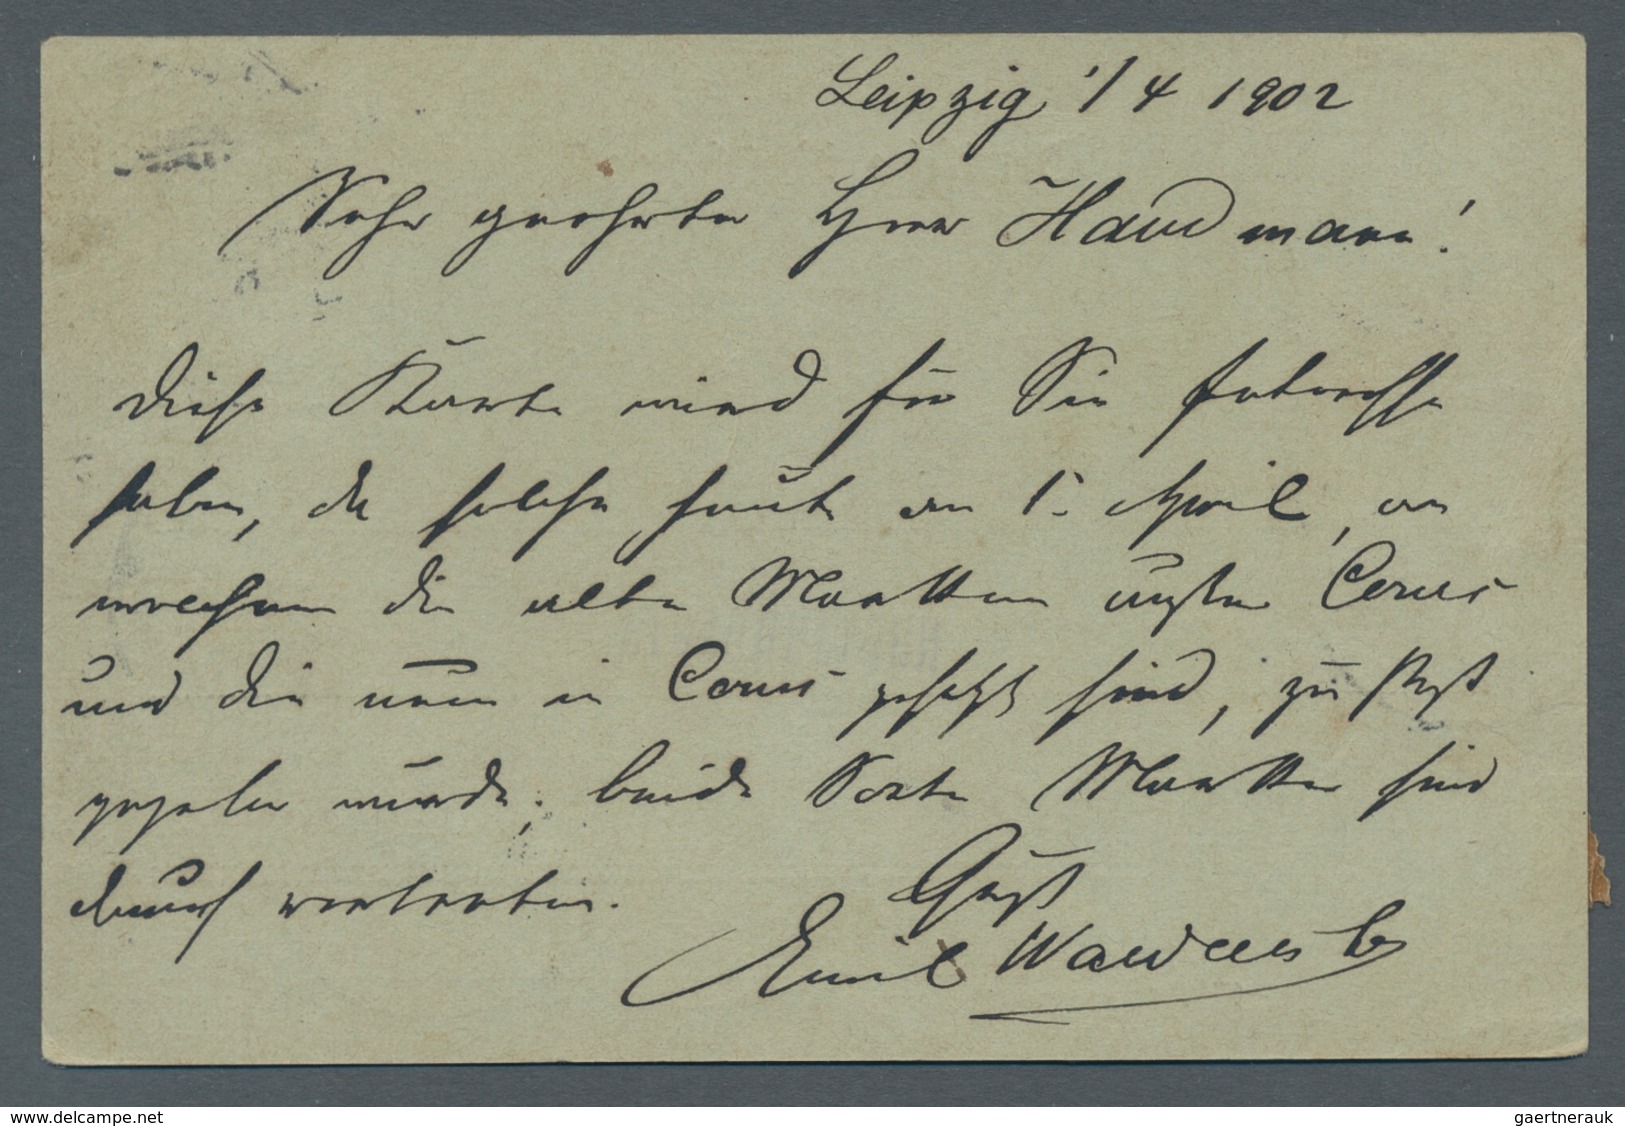 Leipzig, 1/4 1902
Sehr geehrter Herr Handmann!
Diese Karte wird für Sie Interesse
haben, da solche heute am 1. April, an
welchem die alten Marken außer Cours
und die neuen in Cours gesetzt sind, zur Post
gegeben wurde; beide Sorten Marken sind
darauf vertreten.
Emil
www.delcampe.net
gaertnerauk